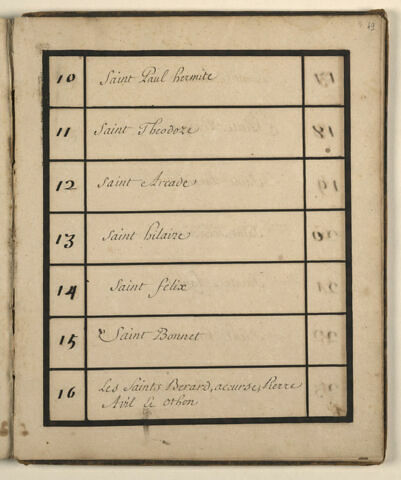 49
10 Saint Paul hermite
11 Saint Theodoze
12 Saint Arcade
13 Saint hilaire
14 Saint felix
15 Saint Bonnet
16 Les Saints Berard, accurse, Pierre
Avit & othon